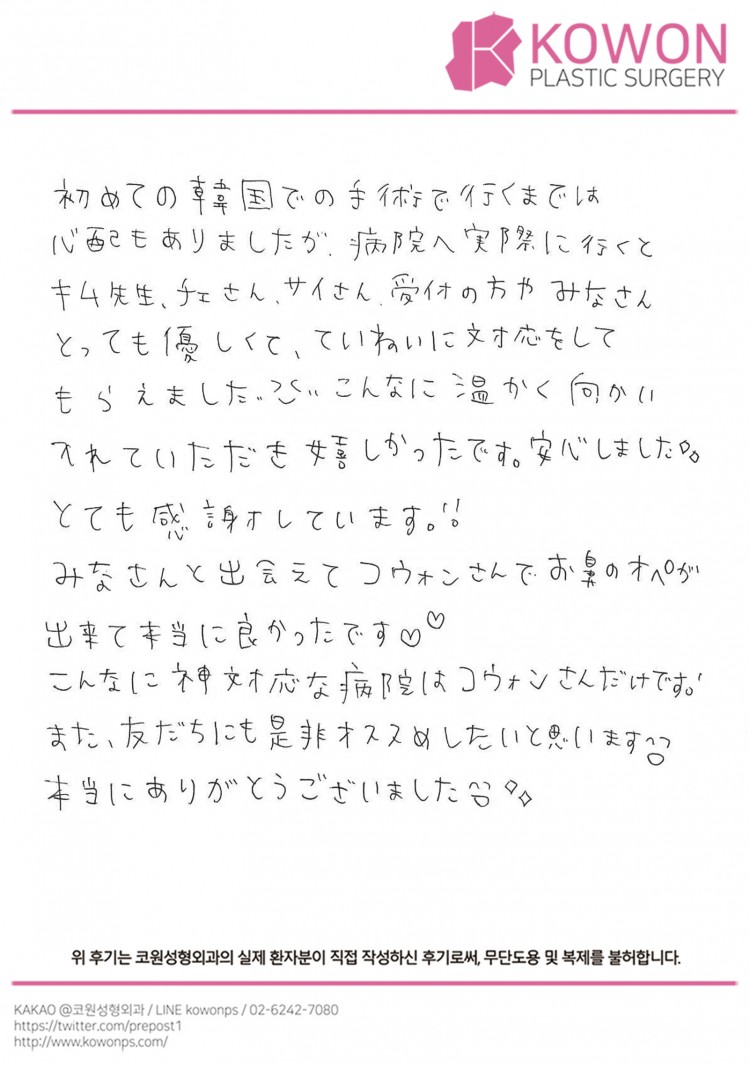 KOWON
PLASTIC SURGERY
初めての韓国での手術で行くまでは
心配もありましたが、病院へ実際に行くと
キム先生、チェさん、サイさん、受付の方や みなさん
とっても優しくて、ていねいに対応をして
もらえました。こんなに温かく向かい
入れていただき嬉しかったです。安心しました
とても感謝しています。!!
みなさんと出会えてコウォンさんでお鼻のオペが
出来て本当に良かったです♡♡
こんなに神対応な病院はコウォンさんだけです。!
また、友だちにも是非オススめしたいと思います
本当にありがとうございました
위 후기는 코원성형외과의 실제 환자분이 직접 작성하신 후기로써, 무단도용 및 복제를 불허합니다.
KAKAO @코원성형외과 / LINE kowonps / 02-6242-7080
https://twitter.com/prepost1
http://www.kowonps.com/